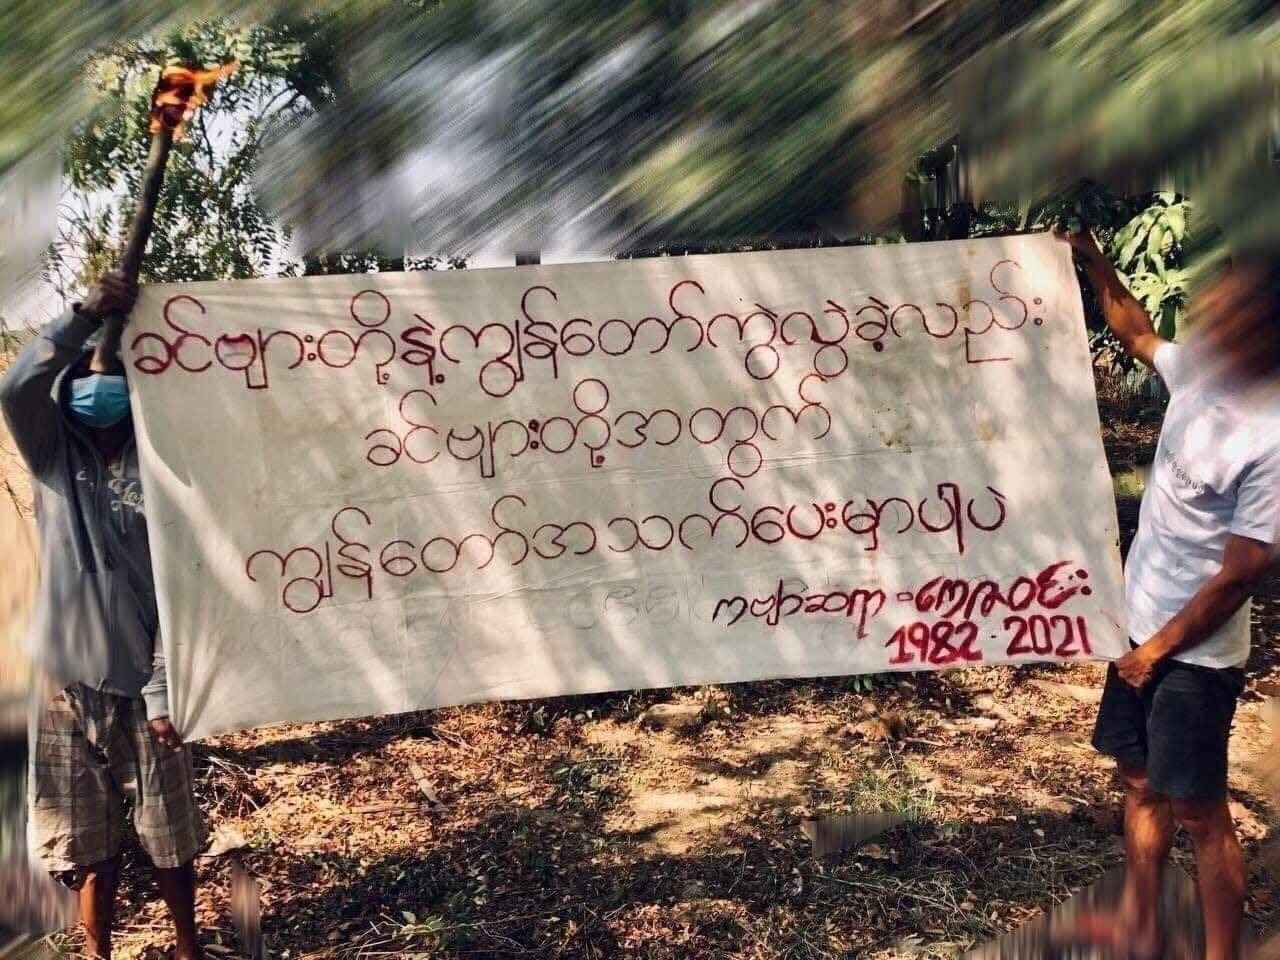 ခင်ဗျားတို့နဲ့ကျွန်တော်ကွဲလွဲခဲ့လည်း
ခင်ဗျားတို့အတွက်
ကျွန်တော်အသက်ပေးမှာပါပဲ
ကဗျာဆရာ - ကေဇဝင်း
1982 - 2021